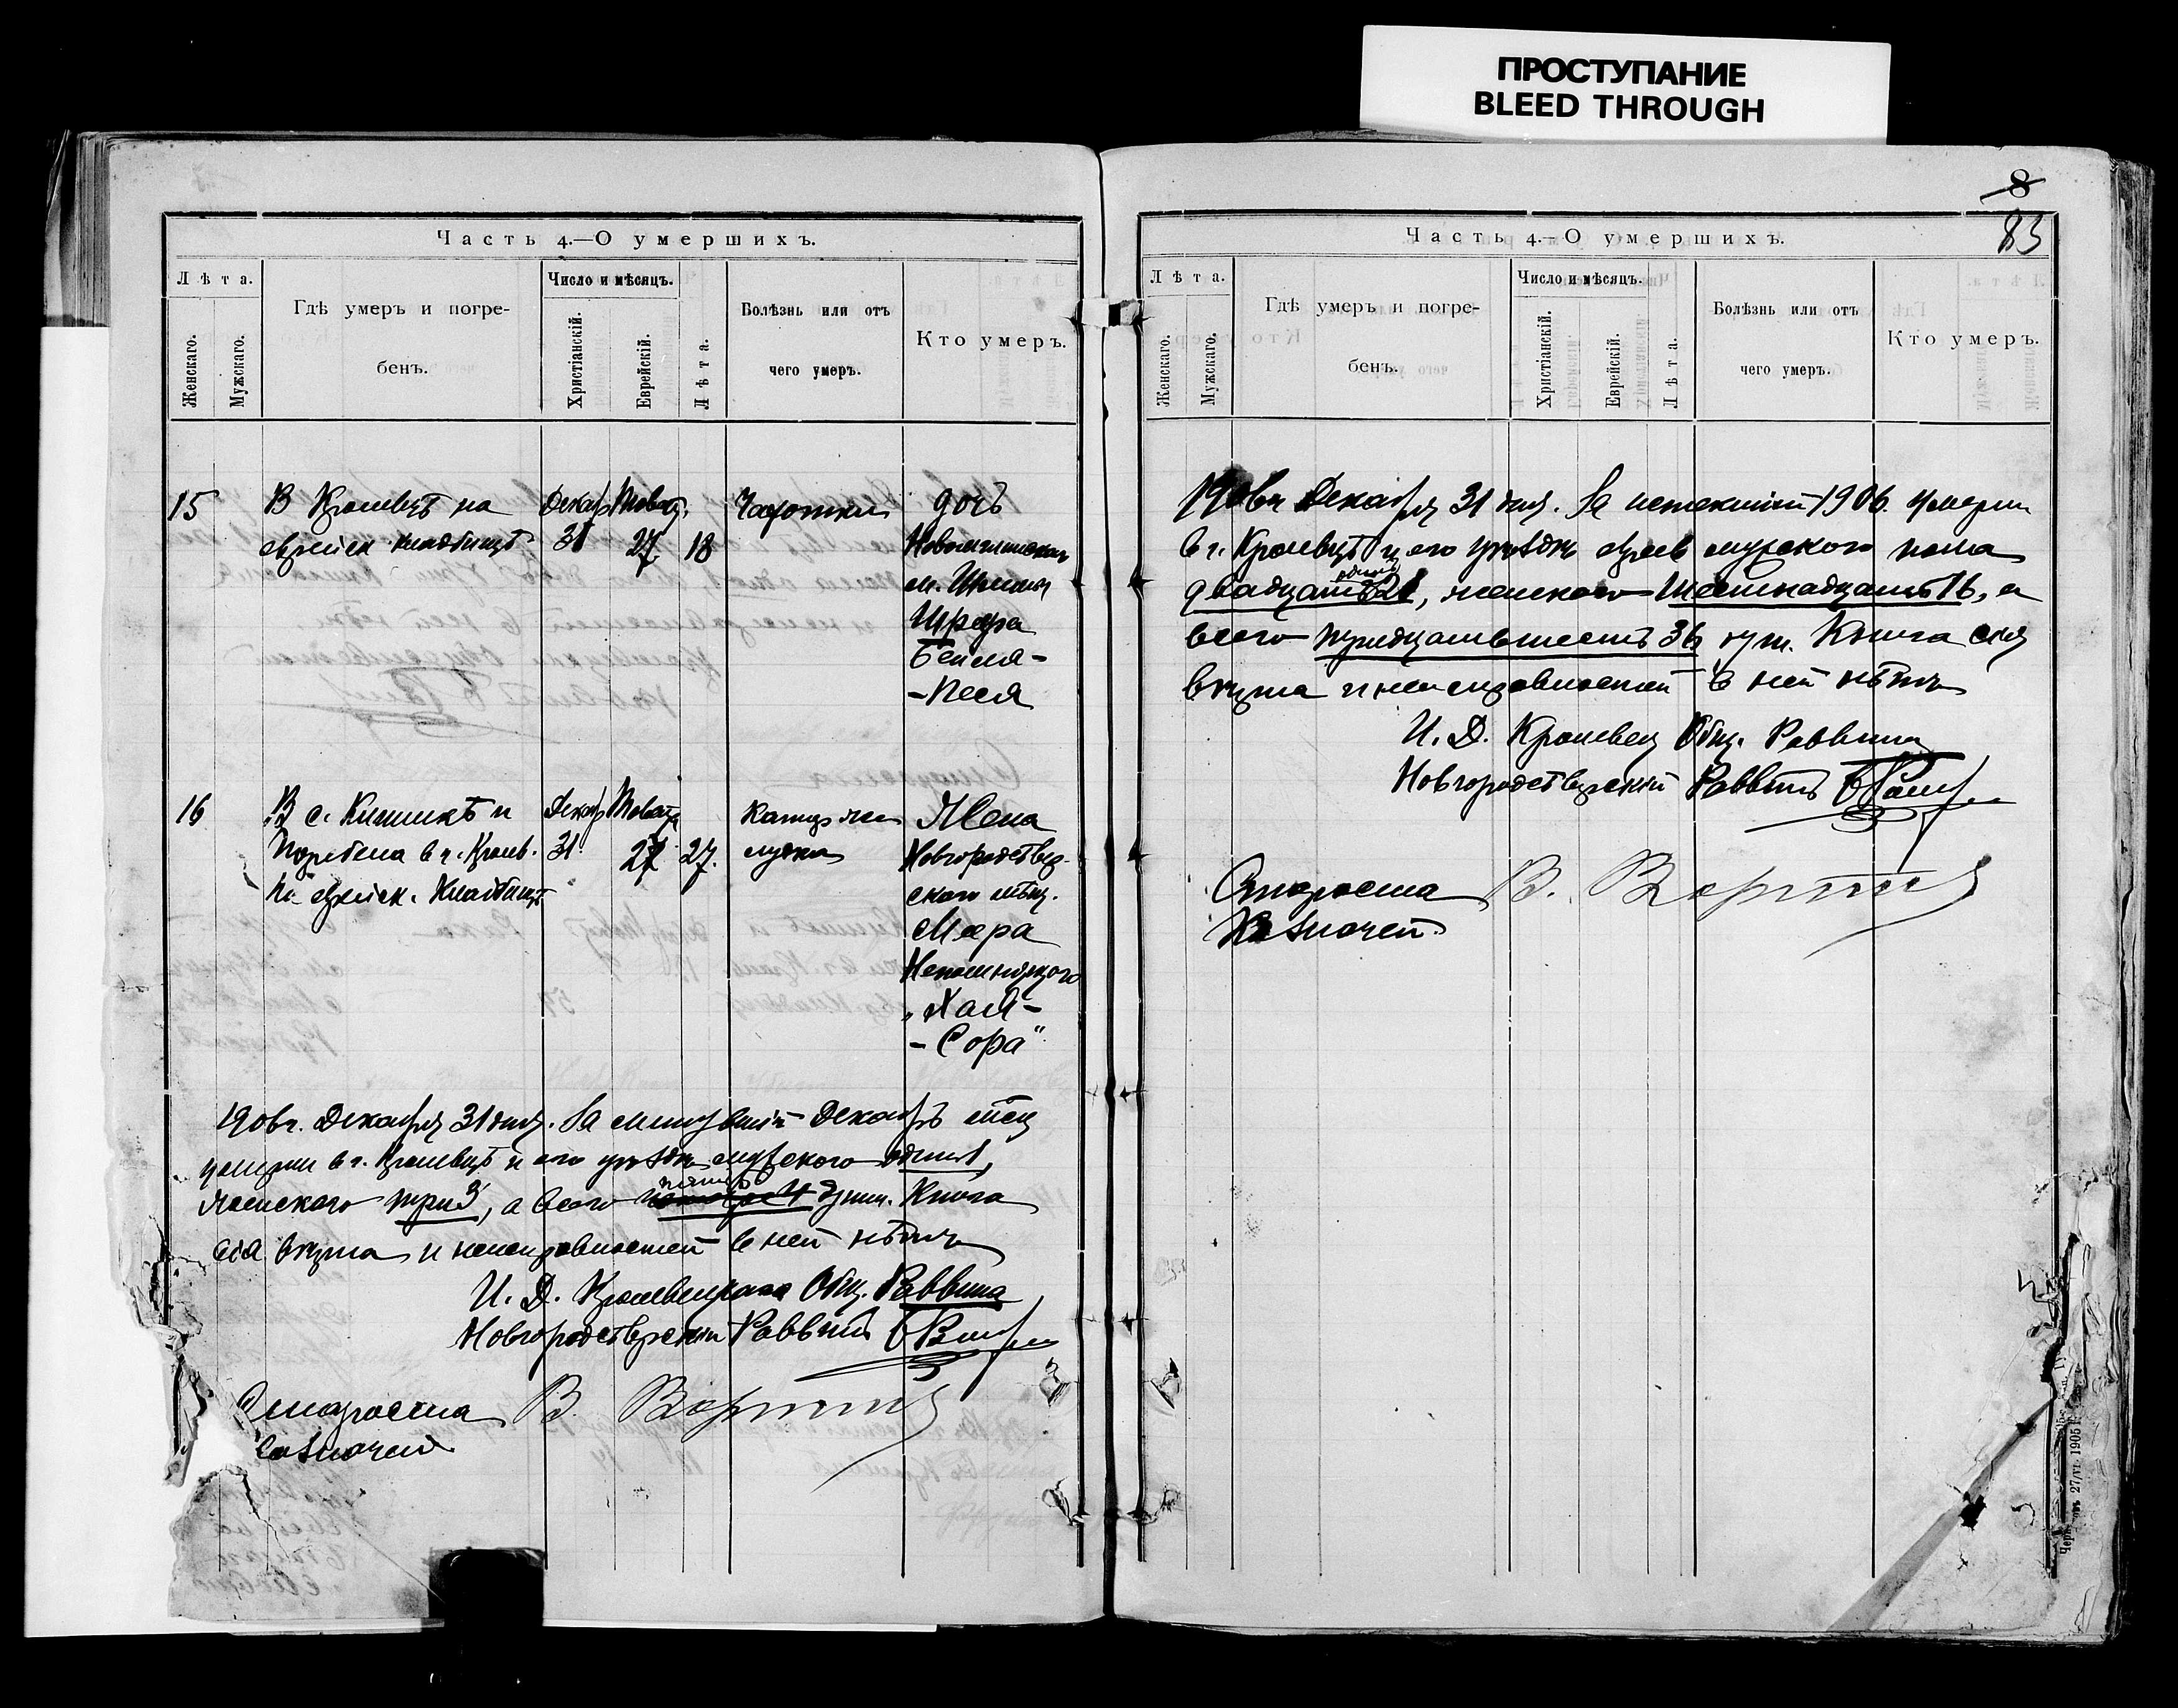 ПРОСТУПАНИЕ
BLEED THROUGH
Часть 4.—О умершихъ.
Лѣта.
Женскаго.
Мужскаго.
Гдѣ умеръ и погре-
бенъ.
Число и мѣсяцъ.
Христіанскій.
Еврейскій.
Лѣта.
Болѣзнь или отъ
чего умеръ.
Кто умеръ.
15
В Кролевцѣ на
еврейск кладбищѣ
Декаб
31
Тевет
27
18
Чахотки
дочь
м.
Шрифа
Бейля-
-Песя
16
В с. и
Погребена в г. Кролев.
на еврейск. Кладбищѣ
Декаб
31
Тевета
27
27.
желудка
Жена
Новгородсѣвер-
ского мѣщ.
Меера
Непомнящого
„Хая-
-Сора"
1906 г. Декабря 31 дня. За минувшій Декабрь мсц
умерли в г. Кролевцѣ и его уѣздѣ мужского один 1,
женского три 3, а всего 4 душ. Книга
сія вѣрна и неисправностей в ней нѣтъ
И. Д. Кролевецкого Общ. Раввина
Новгородсѣверскій Раввинъ
Староста В.
Казначей
8
83
Часть 4.—О умершихъ.
Лѣта.
Женскаго.
Мужскаго.
Гдѣ умеръ и погре-
бенъ.
Число и мѣсяцъ.
Христіанскій.
Еврейскій.
Лѣта.
Болѣзнь или отъ
чего умеръ.
Кто умеръ.
1906 г Декабря 31 дня. За истекшій 1906 умерли
в г. Кролевцѣ и его уѣздѣ евреев мужского пола
двадцать 21, женского Шестнадцать 16, а
всего тридцатьшесть 36 душ. Книга сія
вѣрна и неисправностей в ней нѣтъ
И. Д. Кролевец Общ. Раввина
Новгородсѣверскій Раввинъ
Староста В.
Казначей
27/VI. 1905 г.